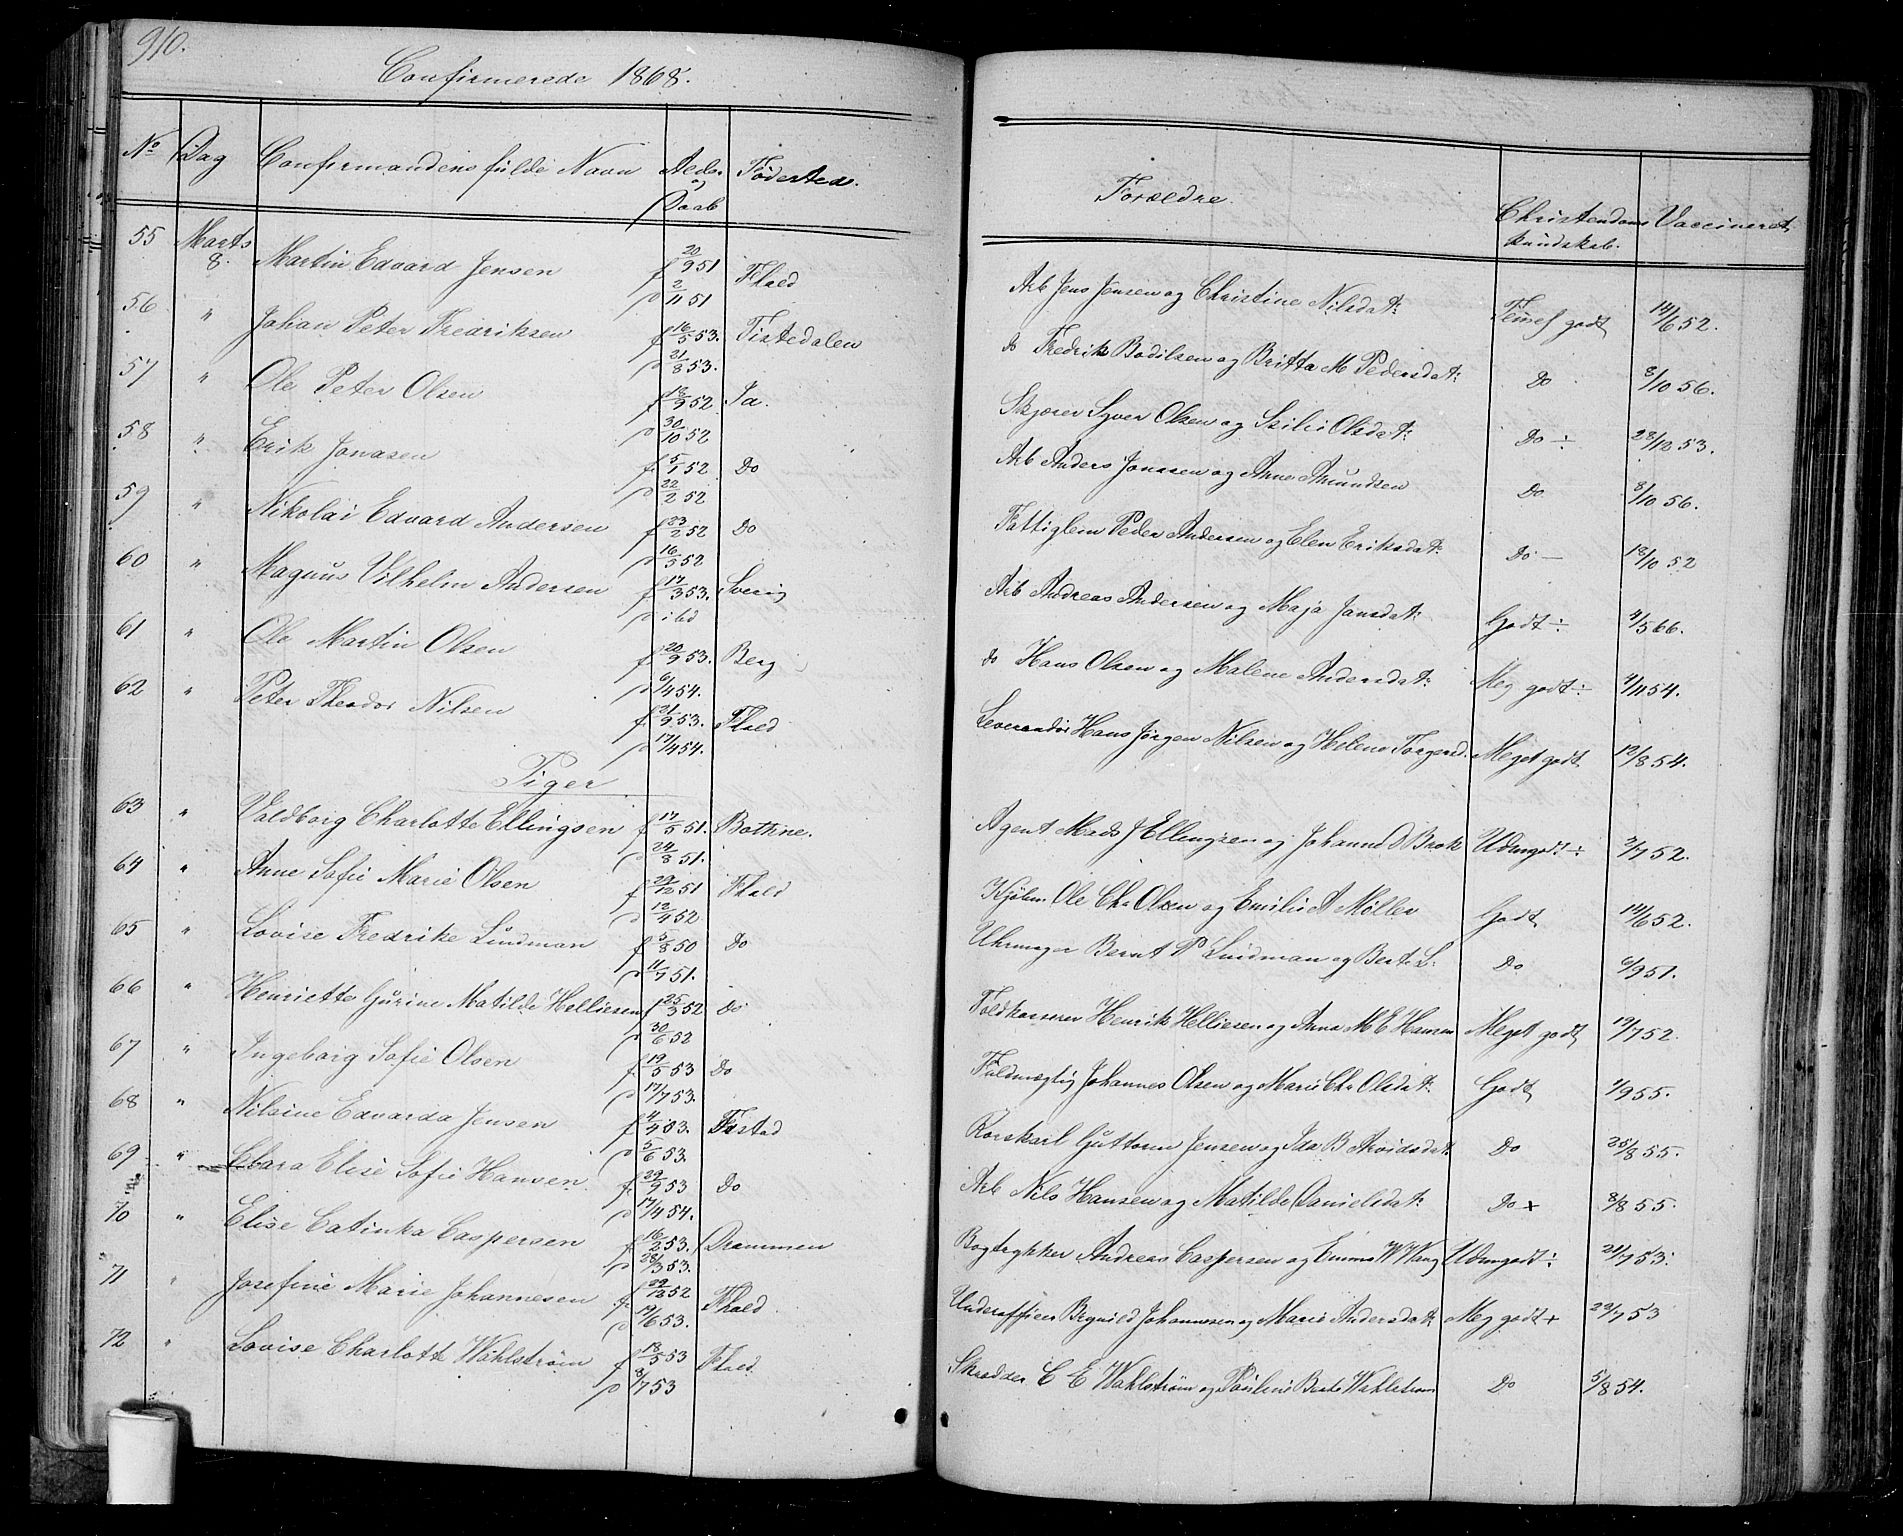 910.
Confirmerede 1868.
No Dag Confirmandens fulde Navn Alder og Daab Fødested.
55 Marts 8. Martin Edvard Jensen f 20/9 51 Fhald
d 2/11 51
56 " Johan Peter Fredriksen f 16/5 53. Tistedalen
d 21/8 53.
57 " Ole Peter Olsen f 18/9 52 Do.
d 30/10 52
58 " Erik Jonasen f 5/1 52 Do
d 22/2 52
59 " Nikolai Edvard Andersen f 23/2 52 Do
d 16/5 52
60 " Magnus Vilhelm Andersen f 17/3 53. Sverig
d ibd
61 " Ole Martin Olsen f 20/9 53. Berg
d 6/4 54.
62 " Peter Theodor Nilsen f 21/9 53. Fhald
d 17/4 54.
Piger
63 " Valdborg Charlotte Ellingsen f 17/5 51. Bothne.
d 24/8 51.
64 " Anne Sofie Marie Olsen f 29/12 51 Fhald
d 12/4 52
65 " Lovise Fredrike Lindman f 5/8 50 Do
d 11/7 51.
66 " Henriette Gurine Matilde Helliesen f 25/3 52 Do
d 30/6 52
67 " Ingeborg Sofie Olsen f 19/5 53 Do
d 17/7 53.
68 " Nilsine Edvarda Jensen f 4/4 53.
d 5/6 53.
69 " Clara Elise Sofie Hansen f 29/9 53 Do
d 17/4 54.
70 " Elise Catinka Caspersen f 16/2 53. Drammen
d 28/3 53.
71 " Josefine Marie Johannesen f 29/12 52 Fhald
d 19/6 53.
72 " Lovise Charlotte Wahlstrøm f 13/5 53 Fhald
d 3/7 53
Forældre. Christendoms kundskab. Vaccineret
Arb Jens Jensen og Christine Nilsdat: Temel godt 14/6 52.
do Fredrik Bodilsen og Britta M Pedersdat: Do 8/10 56.
Skjærer Syver Olsen og Olsdat: Do ÷ 28/12 53.
Arb Anders Jonasen og Anne Amundsen Do 8/10 56.
Fattiglem Peder Andersen og Elen Eriksdat: Do — 18/10 52
Arb Andreas Andersen og Maja Jansdat: Godt ÷ 4/5 66.
do Hans Olsen og Malene Andersdat: Meg godt ÷ 4/11 54.
Leverandør Hans Jørgen Nilsen og Helene Torgersd. Meget godt 12/8 54.
Agent Mads J Ellingsen og Johanne D Brok Udmgodt ÷ 2/7 52.
Kjøbm Ole Chr Olsen og Emilie A Møller Godt 14/6 52.
Uhrmager Bernt P Lindman og Berte L: Do 6/9 51.
Toldkasserer Henrik Helliesen og Anna M E Hansen Meget godt 19/7 52.
Fuldmægtig Johannes Olsen og Marie Chr Olsdat: Godt 1/9 55.
Rorskarl Guttorm Jensen og Ida B Arvidsdat: Do 25/8 55.
Arb Nils Hansen og Matilde Danielsdat: Do + 8/8 55.
Bogtrykker Andreas Caspersen og Emma W Wang Udmgodt ÷ 21/7 53.
Underofficer Johannesen og Marie Andersdat: Meg godt + 29/7 53
Skrædder C E Wahlstrøm og Pauline Berte Wahlstrøm Do 5/8 54.